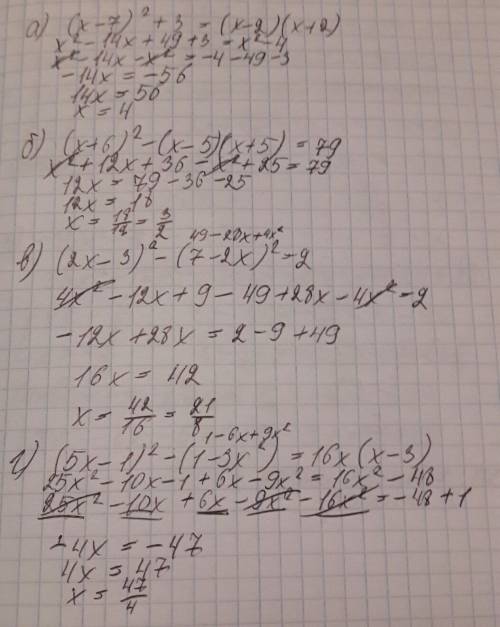 а) (x-7)² + 3 = (x-2)(x+2)
x² - 14x + 49 + 3 = x² - 4
x² - 14x - x² = -4 - 49 - 3
-14x = -56
14x = 56
x = 4
б) (x+6)² - (x-5)(x+5) = 79
x² + 12x + 36 - x² + 25 = 79
12x = 79 - 36 - 25
12x = 18
x = 18/12 = 3/2
49 - 28x + 4x²
в) (2x-3)² - (7-2x)² = 2
4x² - 12x + 9 - 49 + 28x - 4x² = 2
-12x + 28x = 2 - 9 + 49
16x = 42
x = 42/16 = 21/8
1 - 6x + 9x²
г) (5x-1)² - (1-3x²) = 16x(x-3)
25x² - 10x - 1 + 6x - 9x² = 16x² - 48
25x² - 10x + 6x - 9x² - 16x² = -48 + 1
-4x = -47
4x = 47
x = 47/4